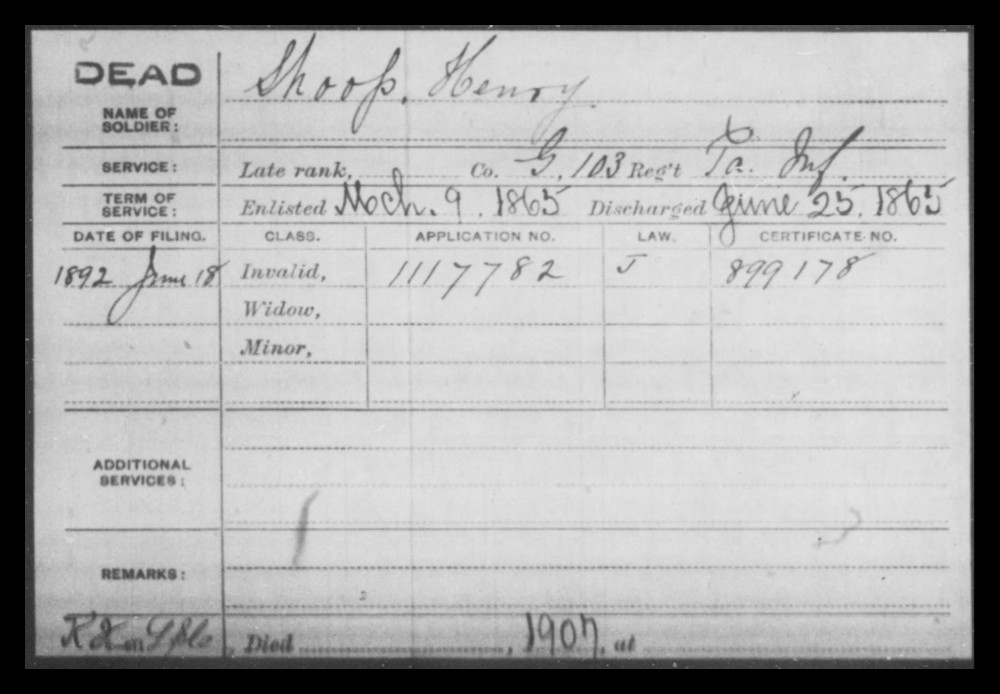 DEAD Shoop, Henry.
NAME OF
SOLDIER:
SERVICE: Late rank, Co. G, 103 Reg't Pa. Inf.
TERM OF
SERVICE: Enlisted Mch. 9, 1865 Discharged June 25, 1865
DATE OF FILING. CLASS. APPLICATION NO. LAW. CERTIFICATE NO.
1892 June 18 Invalid, 1117782 J 899178
Widow,
Minor,
ADDITIONAL
SERVICES:
REMARKS:
, Died , 1907, at